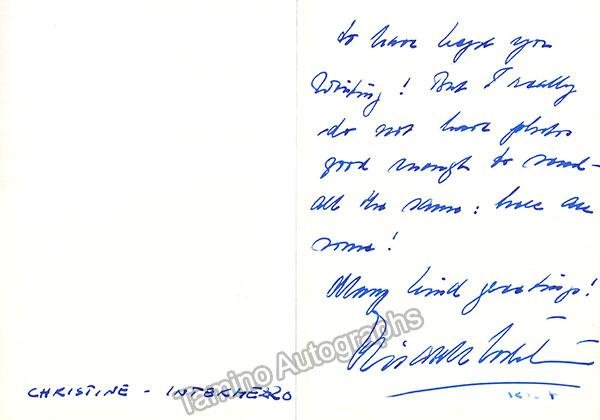 to have kept you
waiting! But I really
do not have photos
good enough to send -
all the same: here are
some!
Many kind greetings!
CHRISTINE - INTERMEZZO
Tamino Autographs